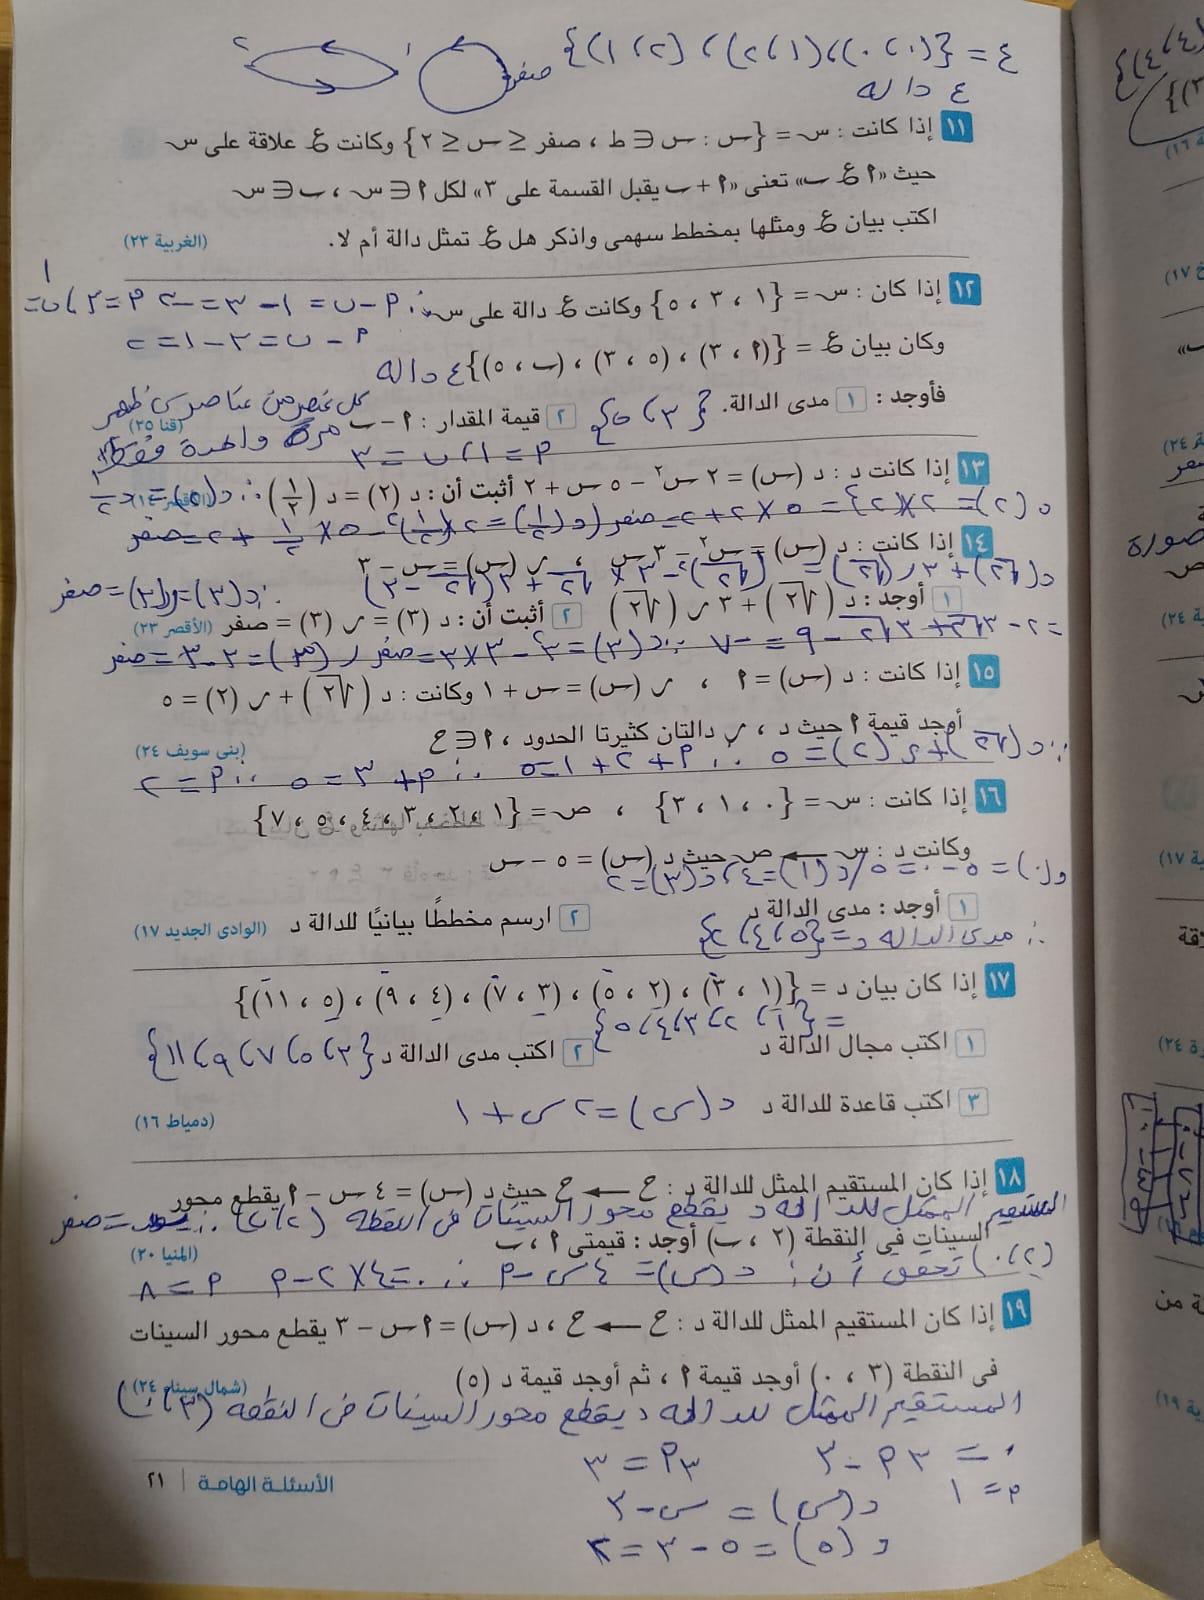 ع = {(٠،٠)،(١،٢)،(٢،١)}
صفر ١ ٢
ع داله
١١ إذا كانت : س = {س : س ∈ ط ، صفر ≤ س ≤ ٢} وكانت ع علاقة على س
حيث «أ ع ب» تعنى «أ + ب يقبل القسمة على ٣» لكل أ ∈ س ، ب ∈ س
اكتب بيان ع ومثلها بمخطط سهمى واذكر هل ع تمثل دالة أم لا. (الغربية ٢٣)
١٢ إذا كان : س = {١ ، ٣ ، ٥} وكانت ع دالة على س
∴ أ - ب = ١ - ٣ = -٢
أ - ب = ٣ - ١ = ٢
وكان بيان ع = {(أ ، ٣) ، (٥ ، ٣) ، (ب ، ٥)} ع داله
كل عنصر من عناصر س ظهر
فأوجد : ١ مدى الدالة. {٣،٥} ٢ قيمة المقدار : أ - ب (قنا ٢٥)
مرة واحدة فقط
أ = ١، ب = ٣
١٣ إذا كانت د : د (س) = ٢ س² - ٥ س + ٢ أثبت أن : د (٢) = د (١/٢) (الأقصر ١٤)
د(٢) = ٢×(٢)² - ٥×٢+٢ = صفر، د(١/٢) = ٢×(١/٢)² - ٥×١/٢ + ٢ = صفر
١٤ إذا كانت : د (س) = س² - ٣ س ، ر (س) = س - ٣
د(√٢) + ٣ر(√٢) = (√٢)² - ٣×√٢ + ٣(√٢ - ٣)
١ أوجد : د (√٢) + ٣ ر (√٢) ٢ أثبت أن : د (٣) = ر (٣) = صفر (الأقصر ٢٣)
∴ د(٣) = ر(٣) = صفر
= ٢ - ٣√٢ + ٣√٢ - ٩ = -٧ ∴ د(٣) = ٣² - ٣×٣ = صفر، ر(٣) = ٣-٣ = صفر
١٥ إذا كانت : د (س) = أ ، ر (س) = س + ١ وكانت : د (√٢) + ر (٢) = ٥
أوجد قيمة أ حيث د ، ر دالتان كثيرتا الحدود ، أ ∈ ح (بنى سويف ٢٤)
∴ د(√٢) + ر(٢) = ٥ ∴ أ + ٢ + ١ = ٥
∴ أ + ٣ = ٥ ∴ أ = ٢
١٦ إذا كانت : س = {٠ ، ١ ، ٣} ، ص = {١ ، ٢ ، ٣ ، ٤ ، ٥ ، ٧}
وكانت د : س ← ص حيث د (س) = ٥ - س
د(٠) = ٥ - ٠ = ٥، د(١) = ٤، د(٣) = ٢
١ أوجد : مدى الدالة د ٢ ارسم مخططًا بيانيًا للدالة د (الوادى الجديد ١٧)
∴ مدى الداله د = {٥،٤،٢}
١٧ إذا كان بيان د = {(١ ، ٣) ، (٢ ، ٥) ، (٣ ، ٧) ، (٤ ، ٩) ، (٥ ، ١١)}
= {١،٢،٣،٤،٥}
١ اكتب مجال الدالة د ٢ اكتب مدى الدالة د {٣،٥،٧،٩،١١}
٣ اكتب قاعدة للدالة د د(س) = ٢س + ١ (دمياط ١٦)
١٨ إذا كان المستقيم الممثل للدالة د : ح ← ح حيث د (س) = ٤ س - أ يقطع محور
المستقيم الممثل للداله د يقطع محور السينات فى النقطه (٢،ب) ∴ ب = صفر
السينات فى النقطة (٢ ، ب) أوجد : قيمتى أ ، ب (المنيا ٢٠)
(٢،٠) تحقق أن: د(س) = ٤س - أ ∴ ٠ = ٤×٢ - أ أ = ٨
١٩ إذا كان المستقيم الممثل للدالة د : ح ← ح ، د (س) = أ س - ٣ يقطع محور السينات
فى النقطة (٣ ، ٠) أوجد قيمة أ ، ثم أوجد قيمة د (٥) (شمال سيناء ٢٤)
المستقيم الممثل للداله د يقطع محور السينات فى النقطه (٣،٠)
٠ = ٣أ - ٣ ٣أ = ٣
أ = ١
د(س) = س - ٣
د(٥) = ٥ - ٣ = ٢
الأسئلة الهامة | ٢١